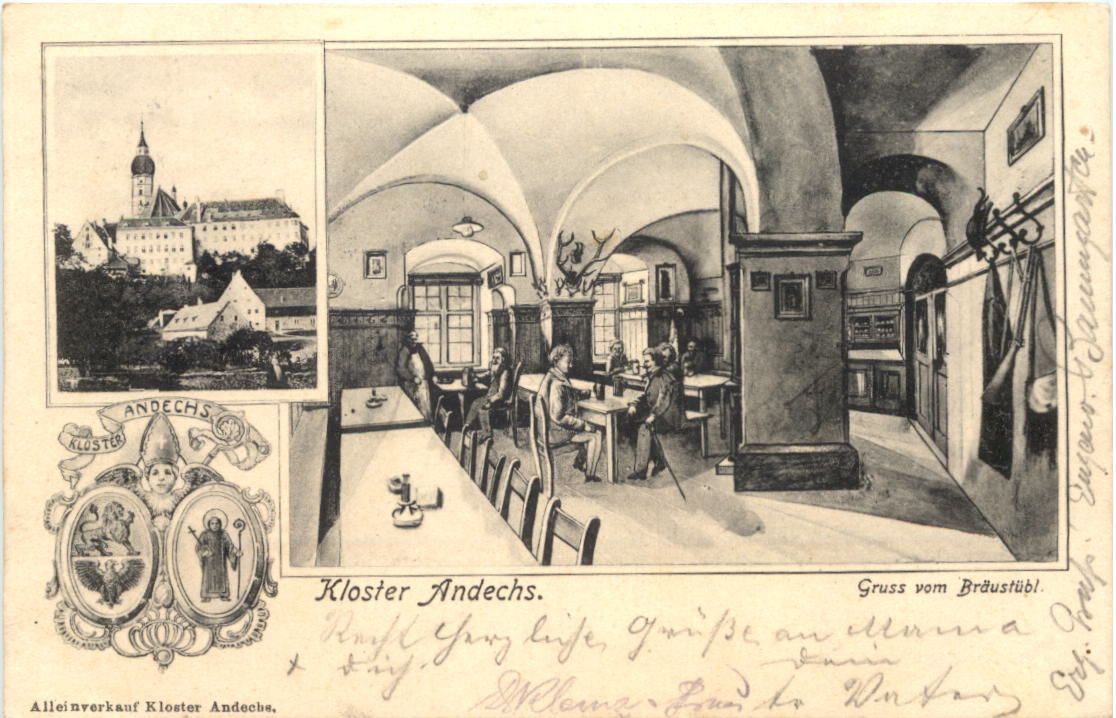 KLOSTER ANDECHS
Kloster Andechs.
Gruss vom Bräustübl.
Recht herzliche Grüße an Mama
+ dich. dein
Vater
Alleinverkauf Kloster Andechs.